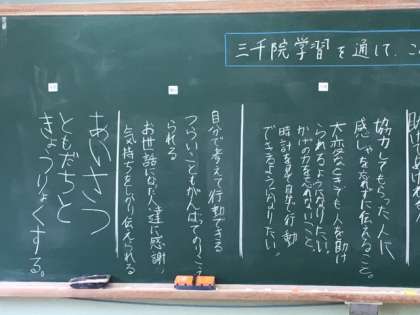 三千院学習を通して、こ
助けてあげ
協力してもらった人に
感しゃを忘れずに伝えること。
大変なときでも人を助け
られるようになりたい。
かげの力を忘れないこと。
時計を見て自分で行動
できるようになりたい。
自分で考えて行動できる
つらいこともがんばってのりこえ
られる
お世話になった人達に感謝の
気持ちをしっかり伝えられる
あいさつ
ともだちと
きょうりょくする。